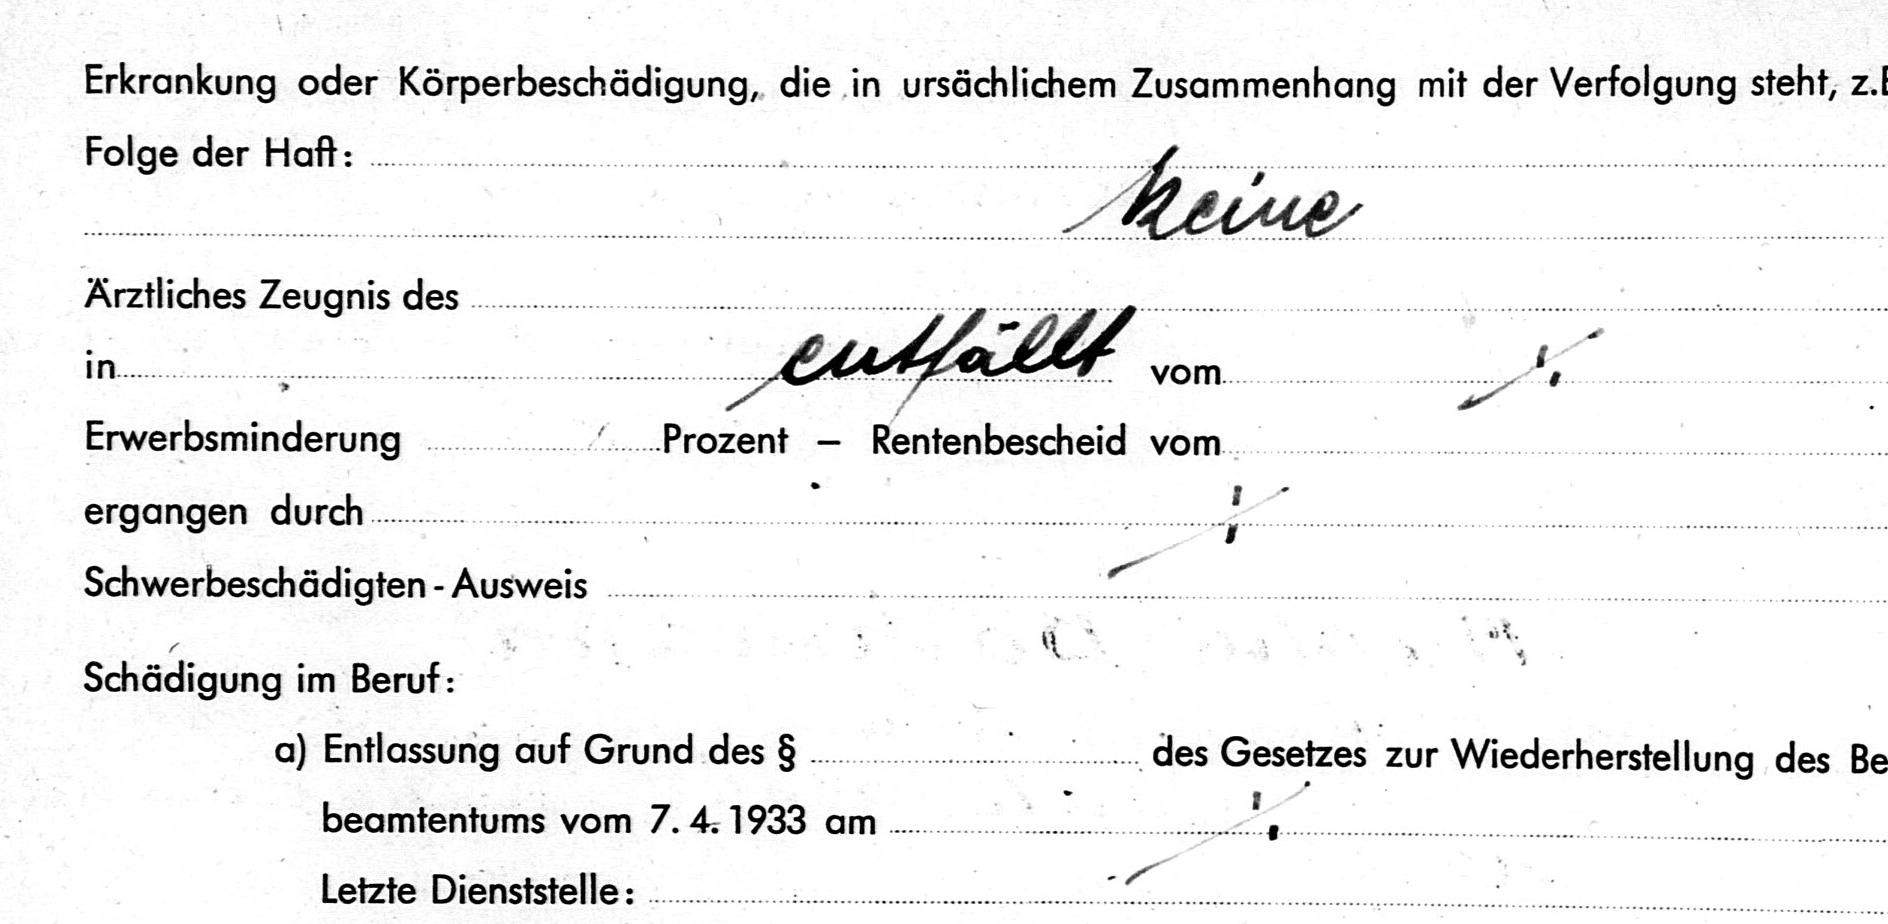 Erkrankung oder Körperbeschädigung, die in ursächlichem Zusammenhang mit der Verfolgung steht, z.B
Folge der Haft:
keine
Ärztliches Zeugnis des
in entfällt vom ./.
Erwerbsminderung Prozent – Rentenbescheid vom
ergangen durch ./.
Schwerbeschädigten-Ausweis
Schädigung im Beruf:
a) Entlassung auf Grund des § des Gesetzes zur Wiederherstellung des Be
beamtentums vom 7. 4. 1933 am ./.
Letzte Dienststelle: